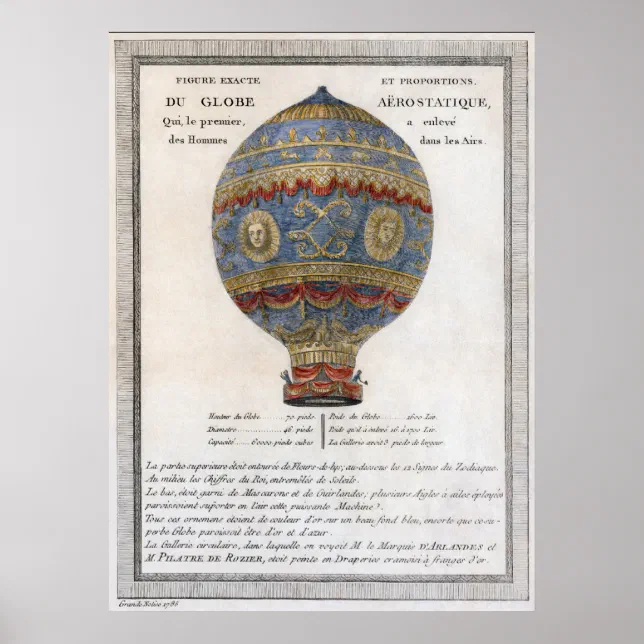 FIGURE EXACTE ET PROPORTIONS.
DU GLOBE AËROSTATIQUE,
Qui, le premier, a enlevé
des Hommes dans les Airs.
Hauteur du Globe .......... 70 pieds
Diametre .......... 46 pieds
Capacité ....... 60000 pieds cubes
Poids du Globe ....... 1600 Liv.
Poids qu'il a enlevé 16 à 1700 Liv.
La Gallerie avoit 3 pieds de largeur.
La partie superieure étoit entourée de Fleurs-de-lys; au-dessous les 12 Signes du Zodiaque.
Au milieu les Chiffres du Roi, entremêlés de Soleils.
Le bas, étoit garni de Mascarons et de Guirlandes; plusieurs Aigles à ailes éployées
paroissoient suporter en l'air cette puissante Machine.
Tous ces ornemens étoient de couleur d'or sur un beau fond bleu, ensorte que ce su-
perbe Globe paroissoit être d'or et d'azur.
La Gallerie circulaire, dans laquelle on voyoit M. le Marquis D'ARLANDES et
M. PILATRE DE ROZIER, etoit peinte en Draperies cramoisi à franges d'or.
1786